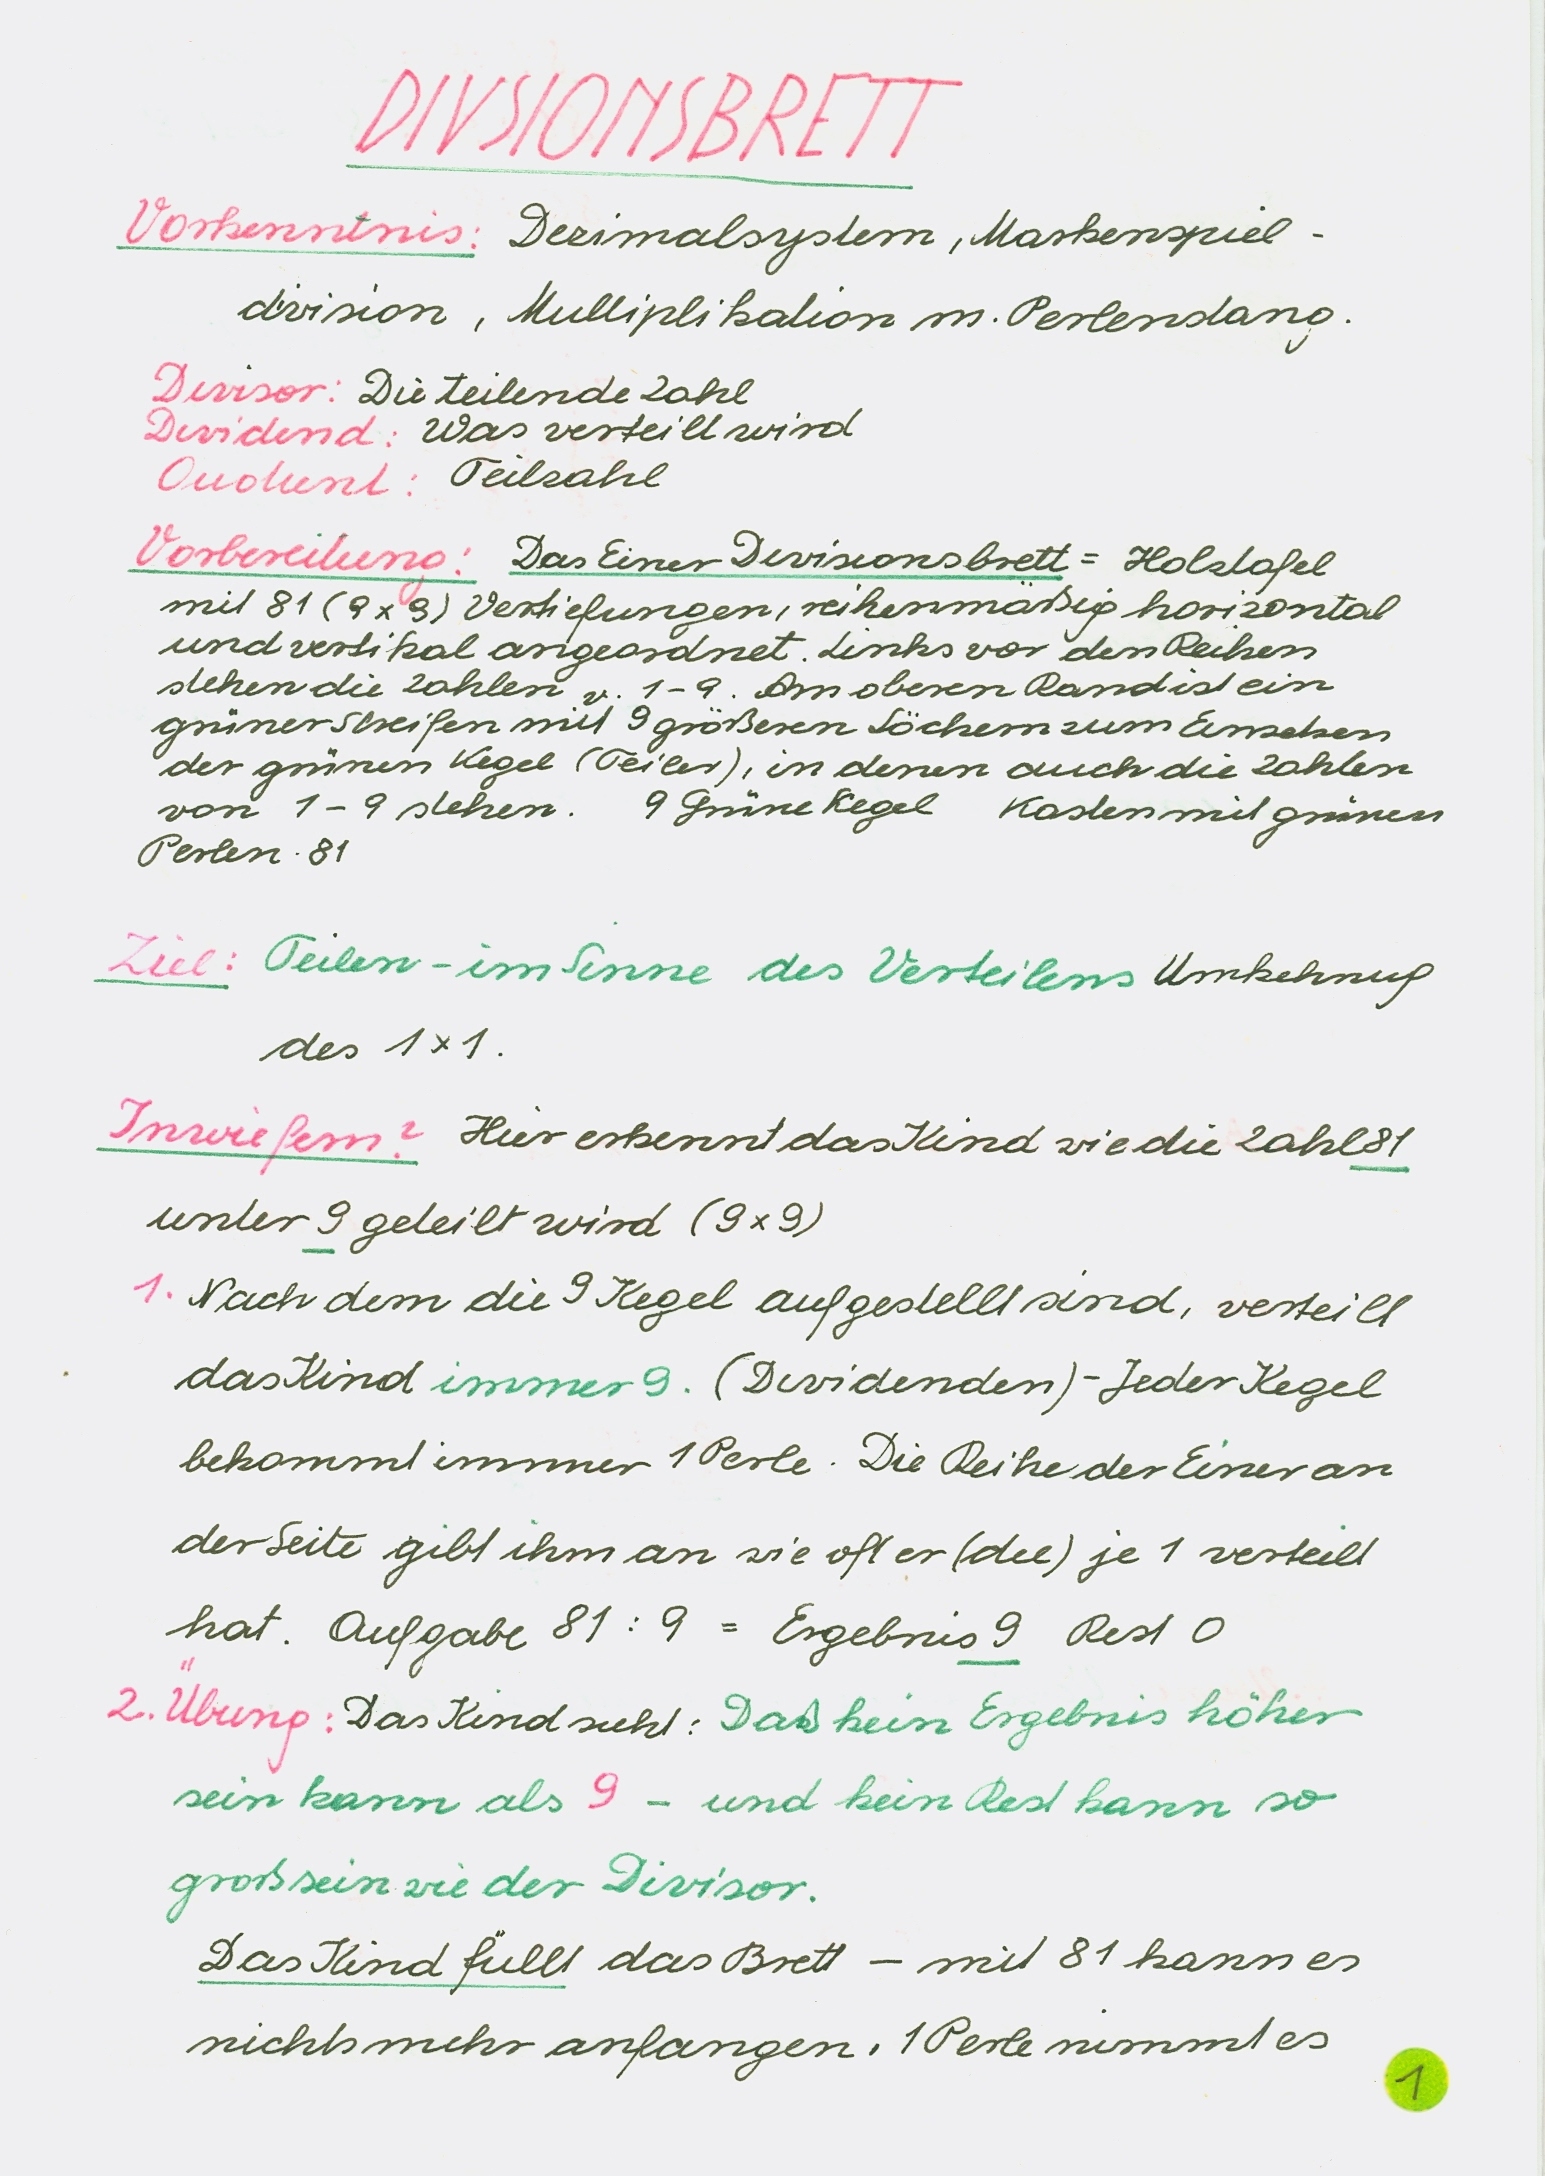 DIVSIONSBRETT
Vorkenntnis: Dezimalsystem, Markenspiel-
division, Multiplikation m. Perlenstang.
Devisor: Die teilende Zahl
Devidend: Was verteilt wird
Quotient: Teilzahl
Vorbereitung: Das Einer Devisionsbrett = Holztafel
mit 81 (9x9) Vertiefungen, reihenmäßig horizontal
und vertikal angeordnet. Links vor den Reihen
stehen die Zahlen v. 1-9. Am oberen Rand ist ein
grüner Streifen mit 9 größeren Löchern zum Einsetzen
der grünen Kegel (Teiler), in denen auch die Zahlen
von 1-9 stehen. 9 Grüne Kegel Kasten mit grünen
Perlen. 81
Ziel: Teilen - im Sinne des Verteilens Umkehrung
des 1x1.
Inwiefern? Hier erkennt das Kind wie die Zahl 81
unter 9 geteilt wird (9x9)
1. Nach dem die 9 Kegel aufgestellt sind, verteilt
das Kind immer 9. (Devidenden) - Jeder Kegel
bekommt immer 1 Perle. Die Reihe der Einer an
der Seite gibt ihm an wie oft er (die) je 1 verteilt
hat. Aufgabe 81 : 9 = Ergebnis 9 Rest 0
2. Übung: Das Kind sieht: Daß kein Ergebnis höher
sein kann als 9 - und kein Rest kann so
groß sein wie der Divisor.
Das Kind füllt das Brett - mit 81 kann es
nichts mehr anfangen, 1 Perle nimmt es
1